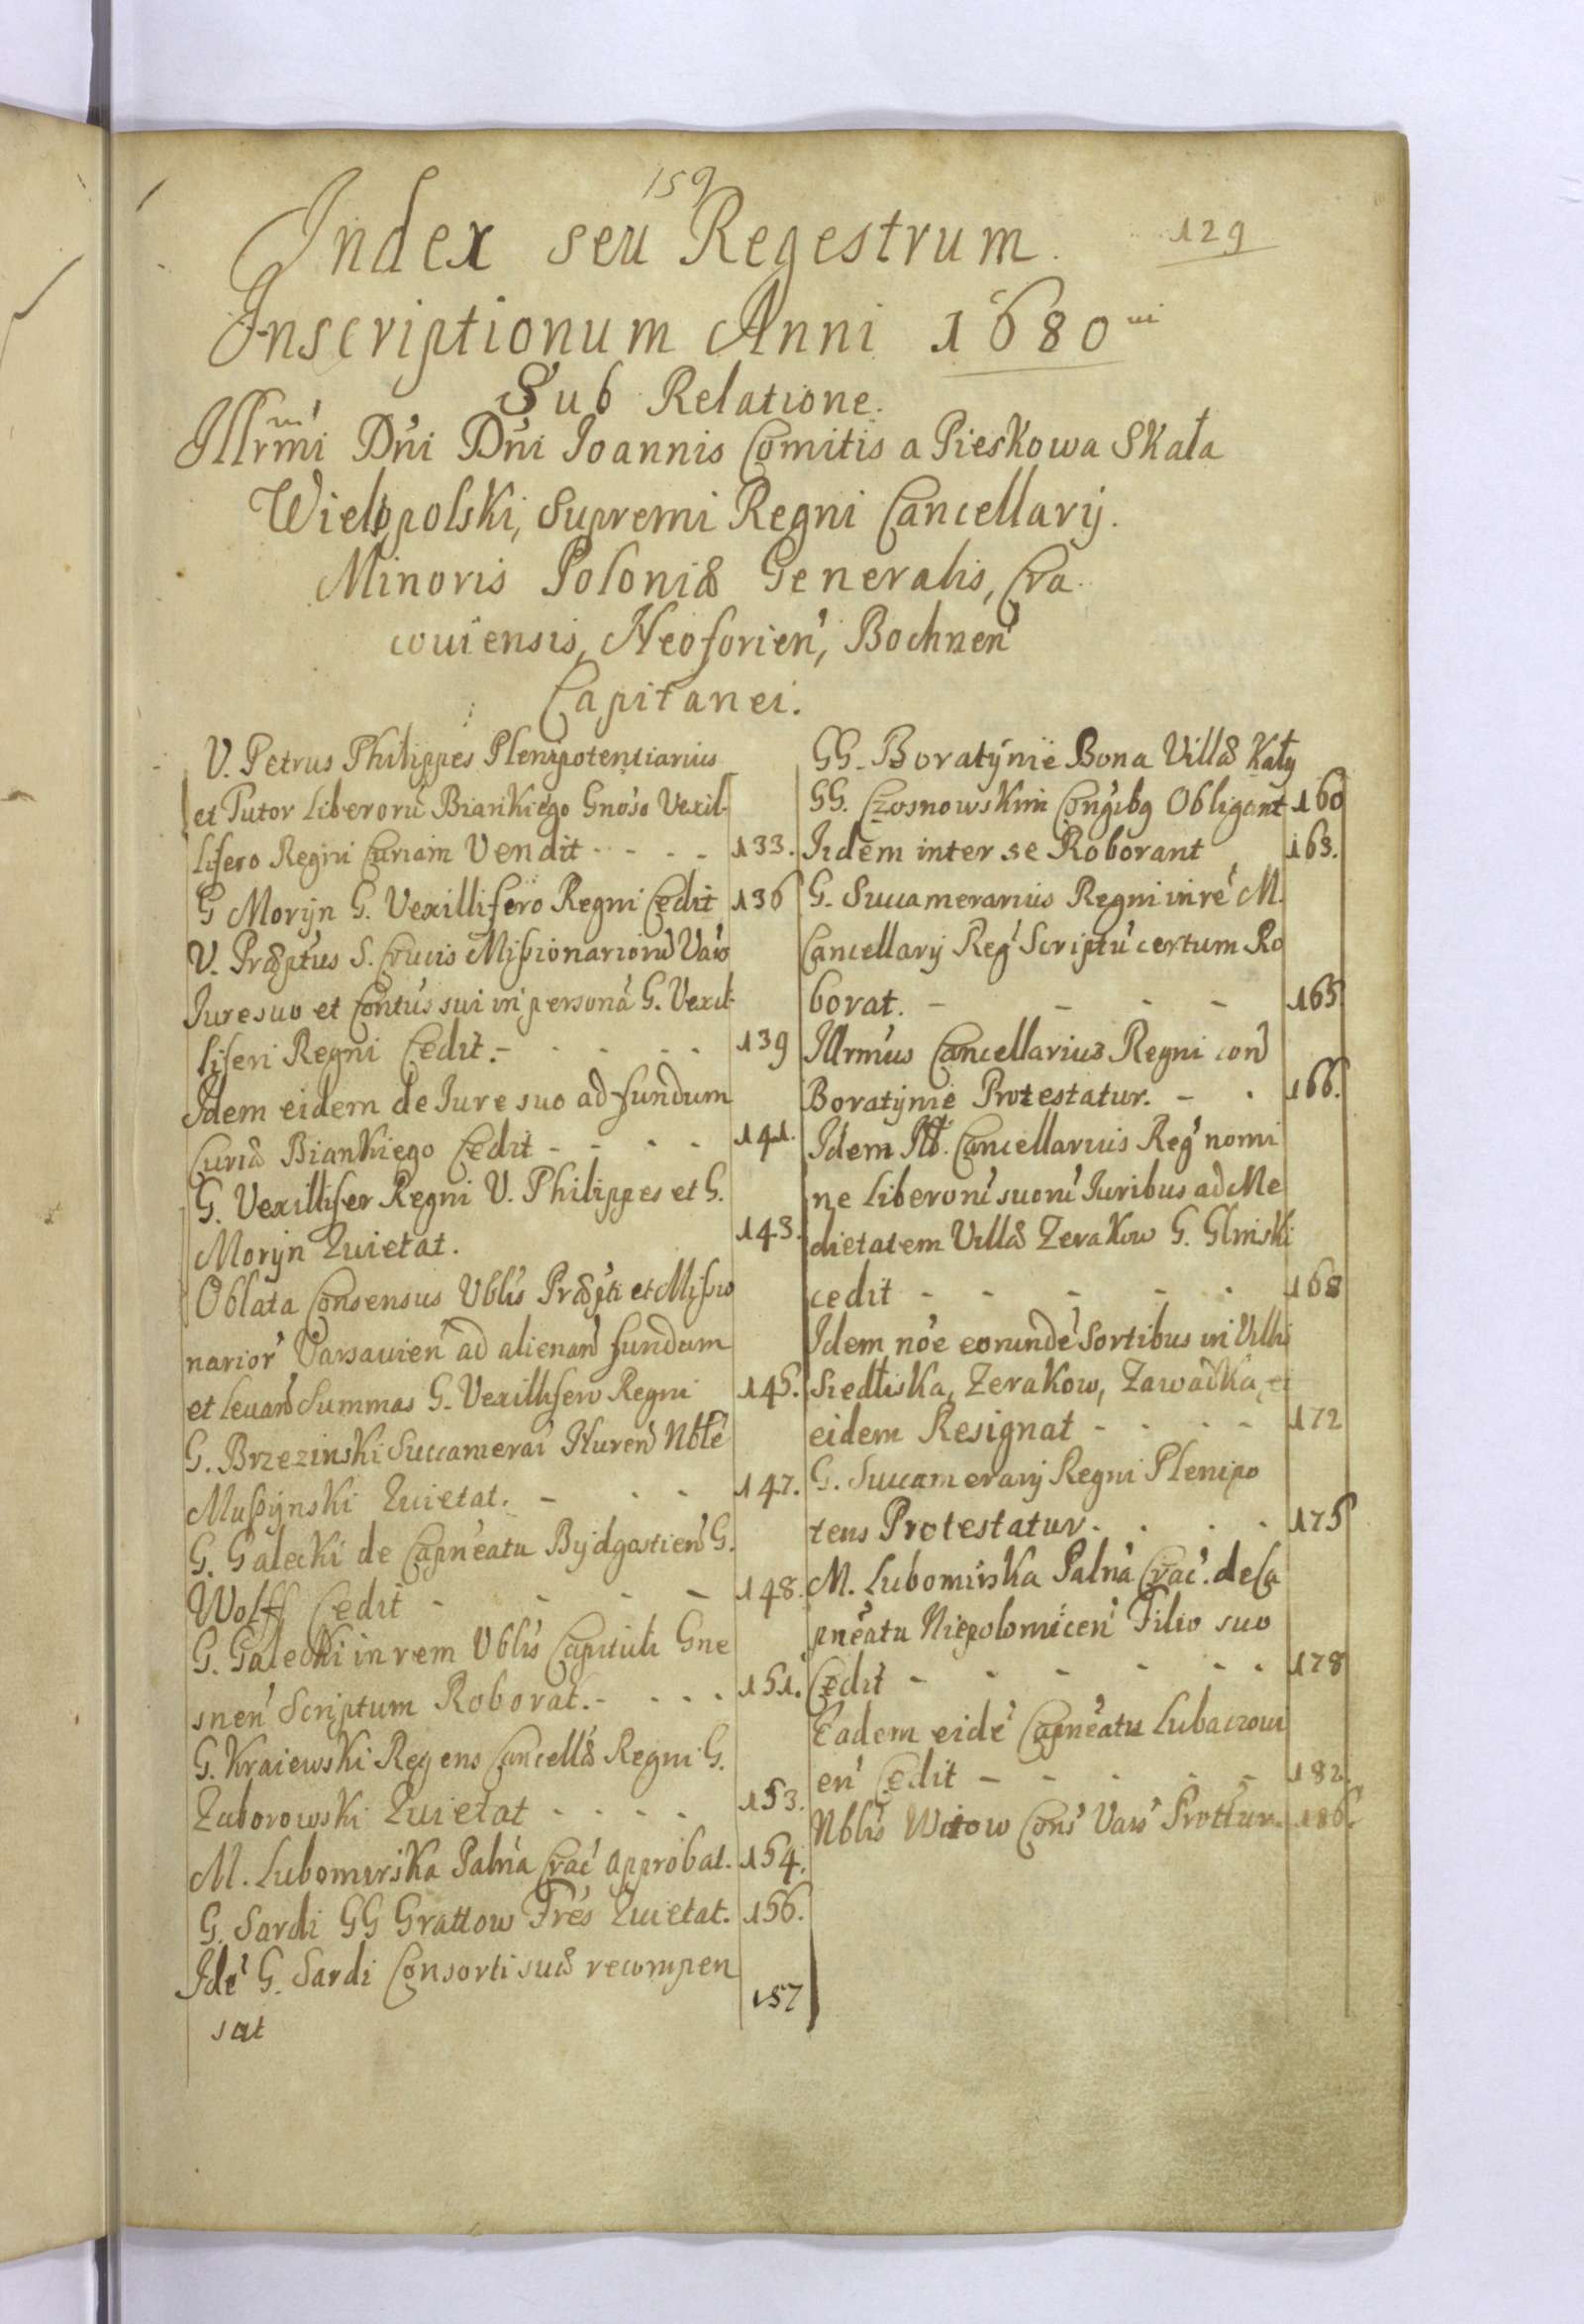 159
129
Index seu Regestrum.
Inscriptionum Anni 1680
Sub Relatione.
Illrmi Dni Dni Ioannis Comitis a Pieskowa Skała
Wielopolski, Supremi Regni Cancellarij.
Minoris Poloniæ Generalis, Cra
couiensis, Neoforien, Bochnen
Capitanei.
V. Petrus Philippes Plenipotentiarius
et Tutor Liberorũ Biankiego Gnoso Vexil-
lifero Regni Curiam Vendit - - - - 133.
G Morijn G. Vexillifero Regni Cedit 136
V. Præptus S. Crucis Missionariorũ Vars
Iure suo et Contus sui in persona G. Vexil-
liferi Regni Cedit. - - - - 139
Idem eidem de Iure suo ad fundum
Curiæ Biankiego Cedit - - - - 141.
G. Vexillifer Regni V. Philippes et G.
Morijn Quietat. 143.
Oblata Consensus Vblis Præpti et Missio
narior Varsauien ad alienand fundum
et leuand Summas G. Vexillifero Regni 145.
G. Brzezinski Succamerar Nuren Nble
Mussynski Quietat. - - - 147.
G. Galecki de Capneatu Bydgostien G.
Wolff Cedit - - - - 148.
G. Galecki in rem Vblis Capituli Gne
snen Scriptum Roborat. - - - - 151.
G. Kraiewski Regens Cancellæ Regni G.
Zaborowski Quietat - - - - 153.
M. Lubomirska Palna Crac approbat. 154.
G. Sardi GG Grattow Fres Quietat. 156.
Ide G. Sardi Consorti suæ recompen
sat 157
GG. Boratynie Bona Villæ Kąty
GG. Czosnowskim Congibg Obligant 160
Iidem inter se Roborant 163.
G. Succamerarius Regni in re M.
Cancellarij Reg Scriptũ certum Ro
borat. - - - - 165
Illrmus Cancellarius Regni con
Boratynie Protestatur. - - 166.
Idem Cancellarius Reg nomi
ne Liberorũ suorũ Iuribus ad Me
dietatem Villæ Zerakow G. Glinski
cedit - - - - - 168
Idem noe eorunde Sortibus in Villis
Siedliska, Zerakow, Zawadka, et
eidem Resignat - - - - 172
G. Succamerarij Regni Plenipo
tens Protestatur. - - - 175
M. Lubomirska Palna Crac. de Ca
pneatu Niepolomicen Filio suo
Cedit - - - - - - 178
Eadem eide Capneatu Lubaczoui
en Cedit - - - - - 182.
Nblis Witow Cons Vars Prottur. 186.